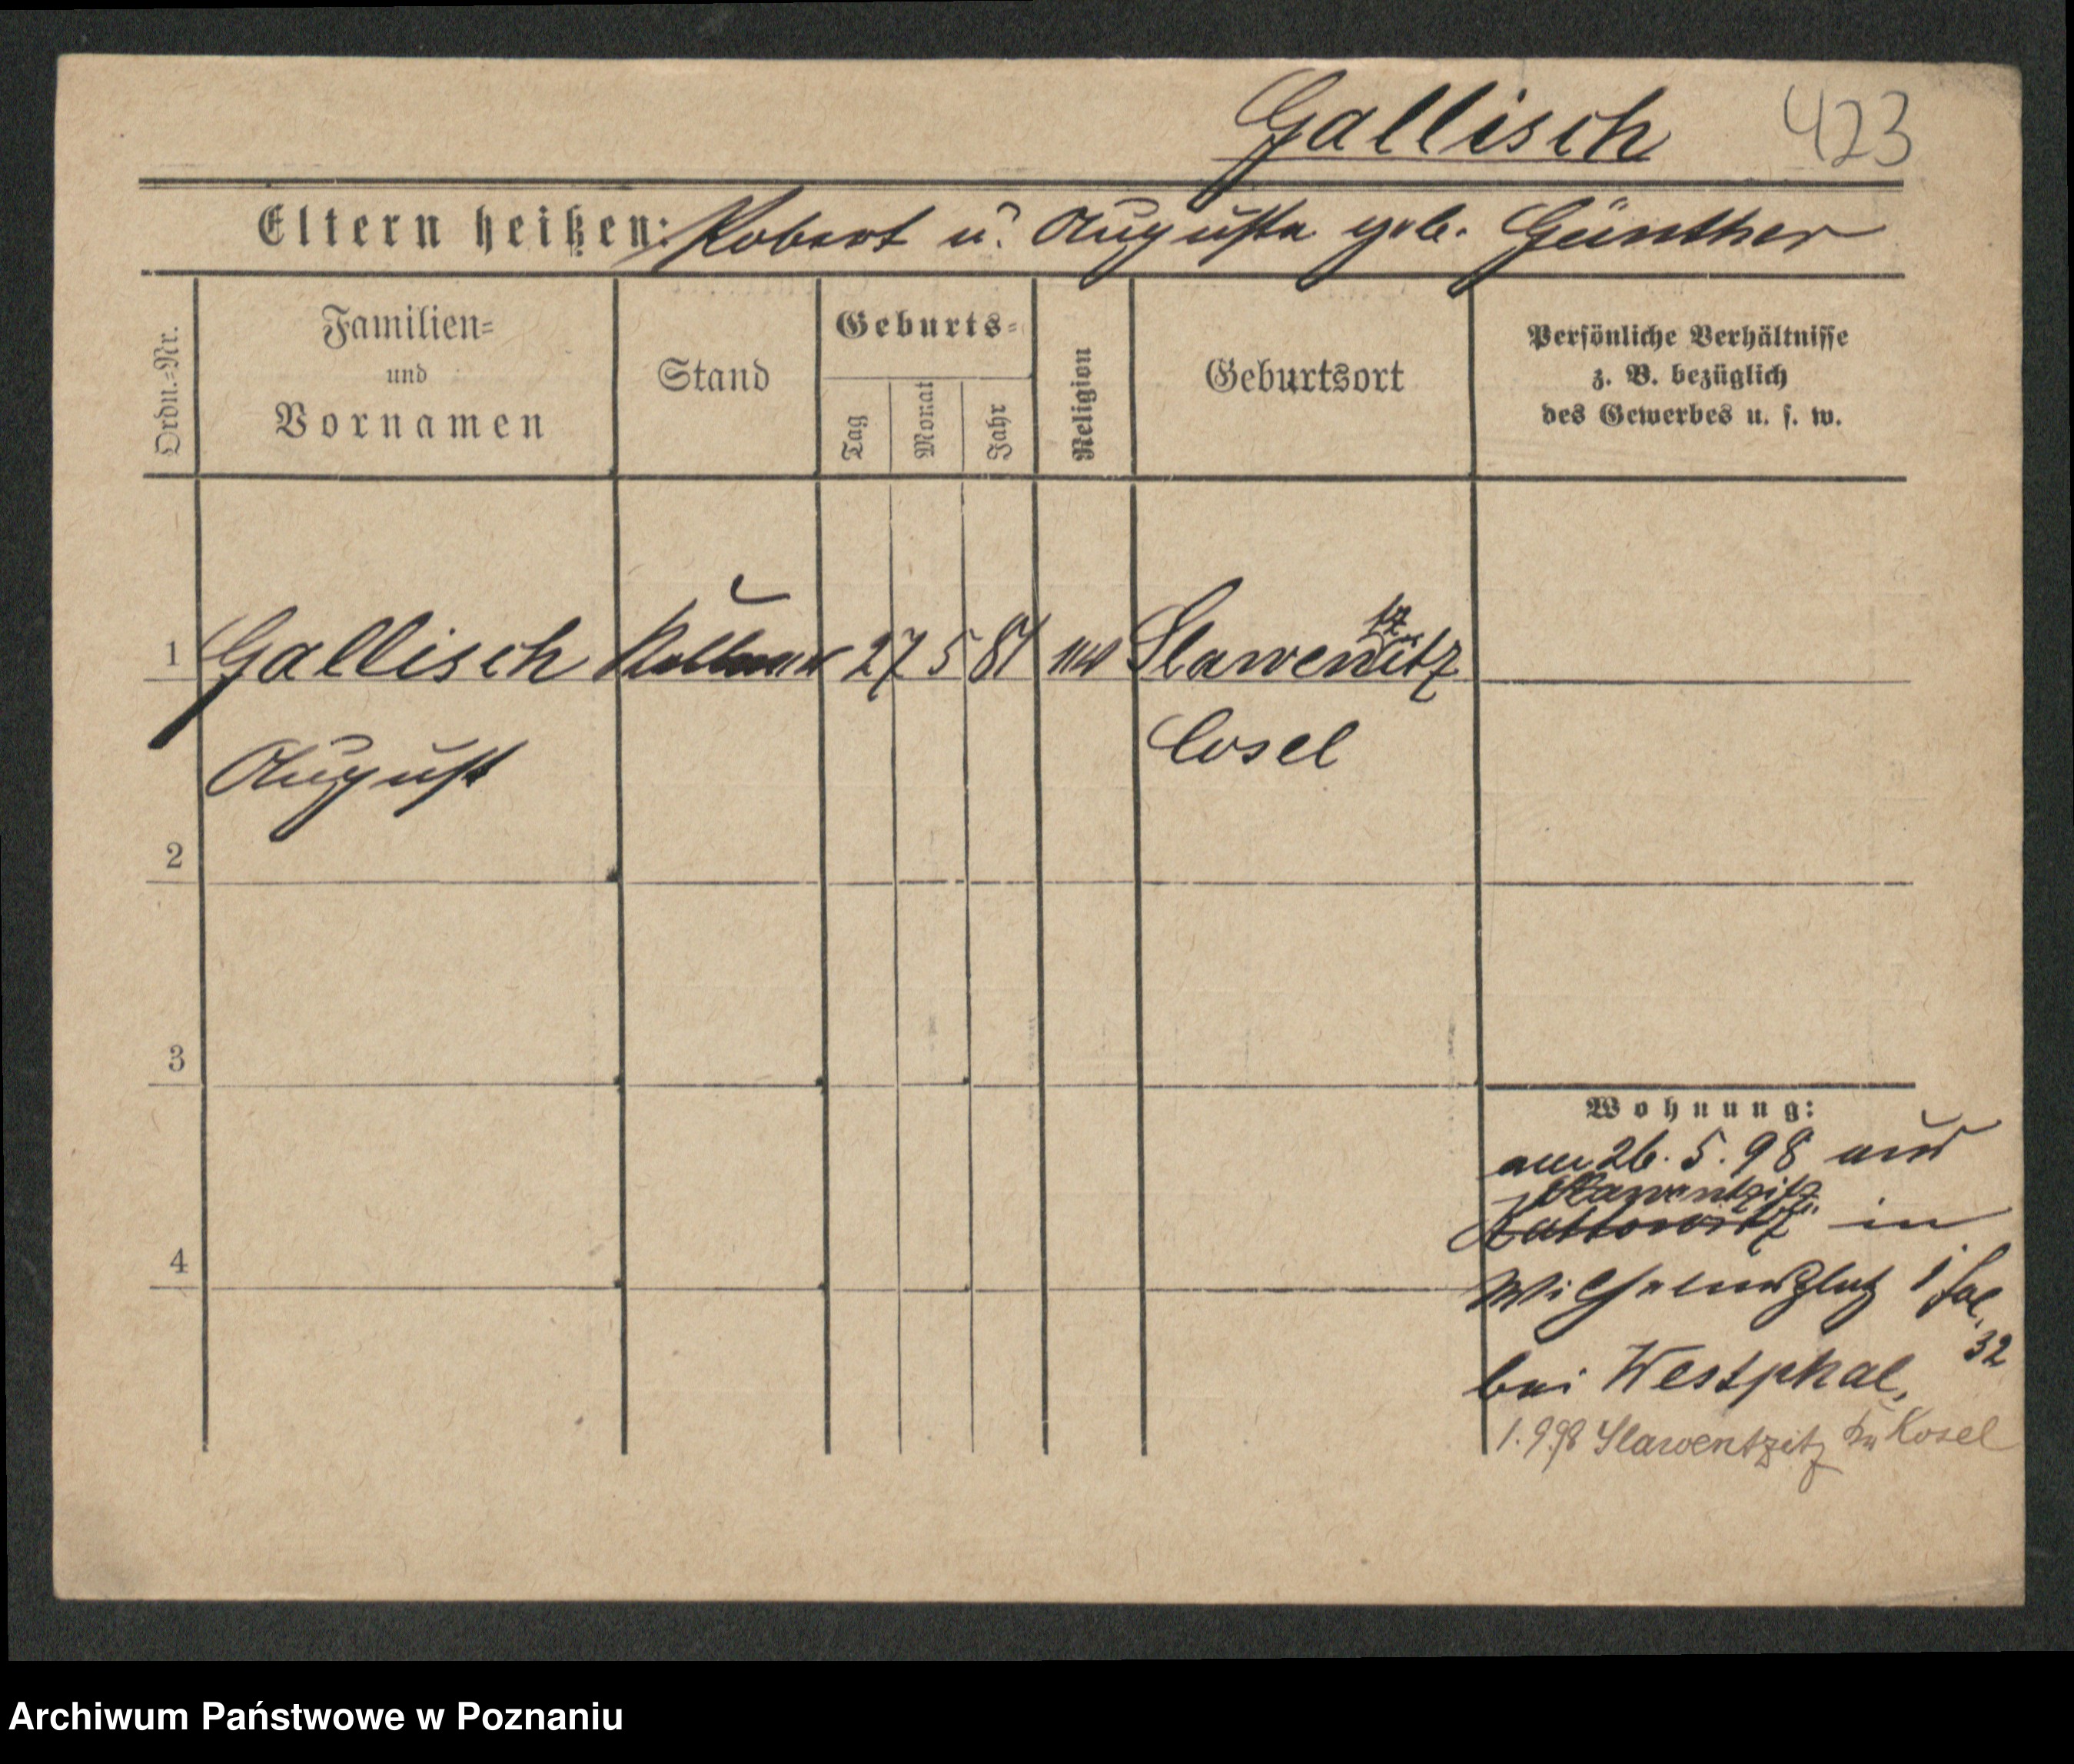 Gallisch 423
Eltern heißen: Robert u. Auguste geb. Günther
Ordn.-Nr.
Familien-
und
Vornamen
Stand
Geburts-
Tag
Monat
Jahr
Religion
Geburtsort
Persönliche Verhältnisse
z. B. bezüglich
des Gewerbes u. s. w.
1 Gallisch Kellner 27 5 81 Slawentzitz
August Cosel
2
3
4
Wohnung:
am 26. 5. 98 aus
Slawentzitz
Kattowitz in
Wilhelmsplatz 1
32
bei Westphal,
1.9.98 Slawentzitz Kr Kosel
Archiwum Państwowe w Poznaniu